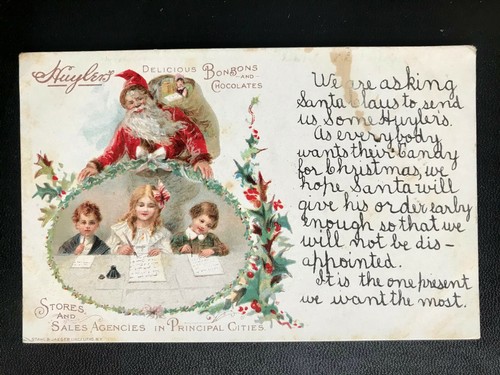 Huyler's
DELICIOUS BONBONS
AND
CHOCOLATES
We are asking
Santa Claus to send
us some Huylers.
As everybody
wants their Candy
for Christmas, we
hope Santa will
give his order early
enough so that we
will not be dis-
appointed.
It is the one present
we want the most.
STORES
AND
SALES AGENCIES IN PRINCIPAL CITIES